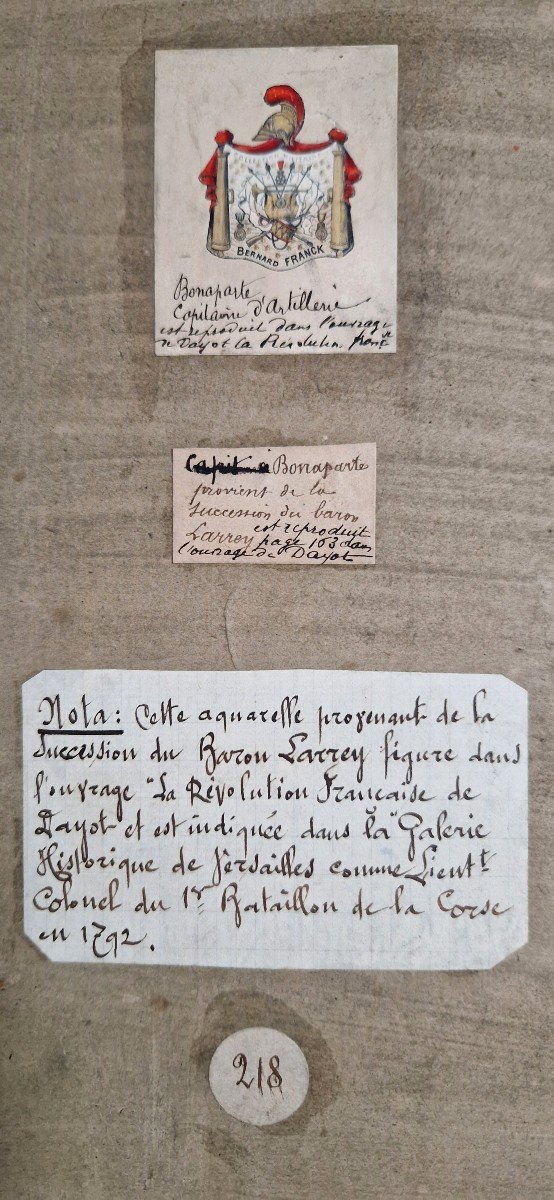 COLLECTION
BERNARD FRANCK
Bonaparte
Capitaine d'Artillerie
est reproduit dans l'ouvrage
de Dayot la Révolution franç
Bonaparte
provient de la
succession du baron
Larrey est reproduit
page 163 dans
l'ouvrage de Dayot
Nota: Cette aquarelle provenant de la
Succession du Baron Larrey figure dans
l'ouvrage "La Révolution Française de
Dayot et est indiquée dans la "Galerie
Historique de Versailles comme Lieutt
Colonel du 1er Bataillon de la Corse
en 1792.
218